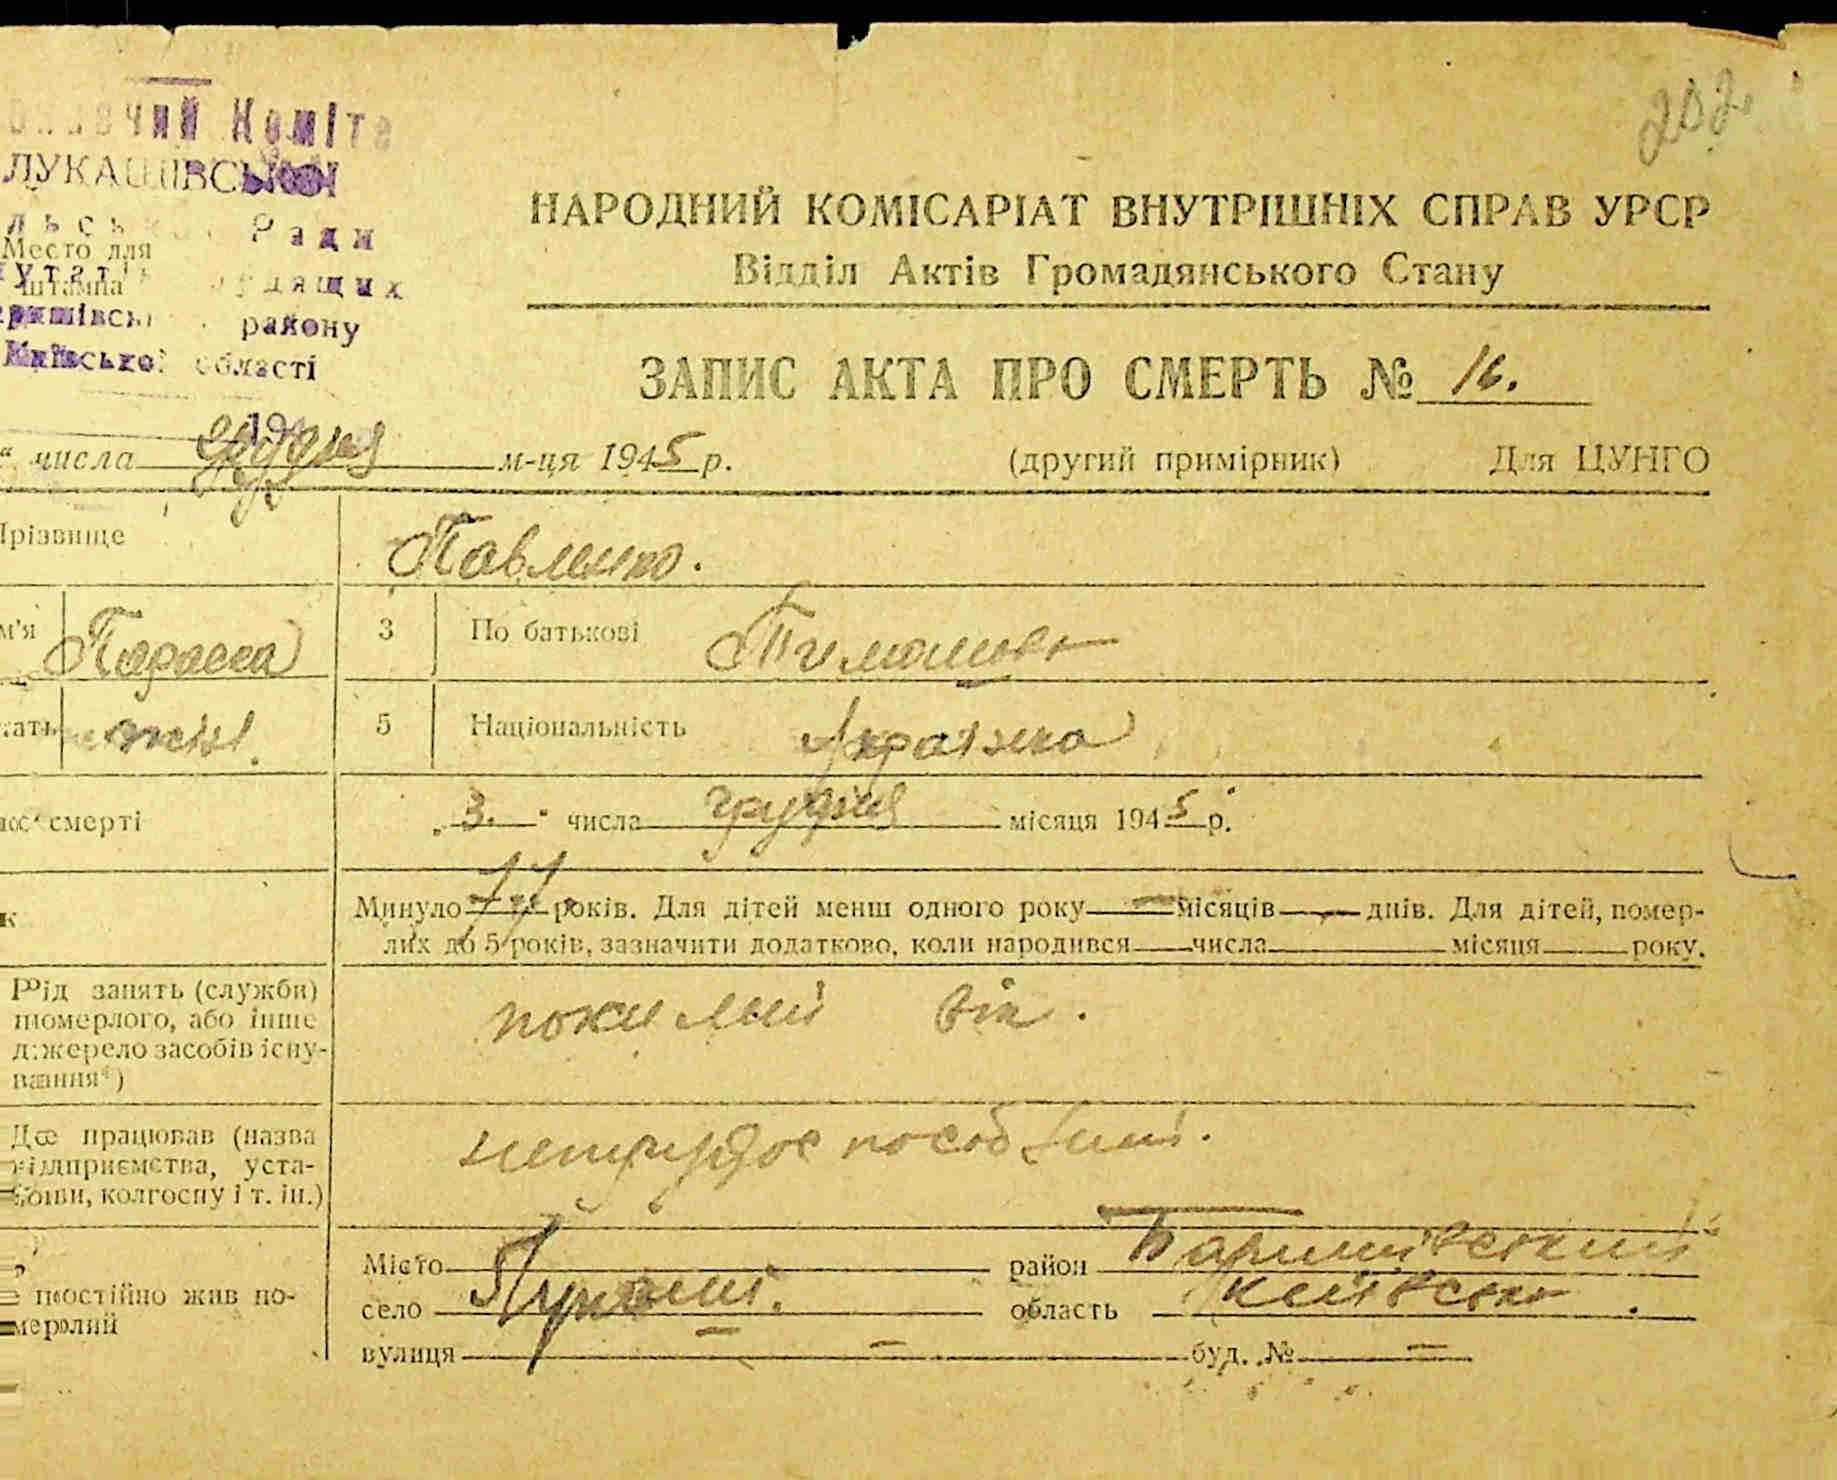 202
чий Коміте
ЛУКАШІВСЬКОЇ
льсь Ради
Место для
штампа
утаті удящих
аришівсь району
Київської області
НАРОДНИЙ КОМІСАРІАТ ВНУТРІШНІХ СПРАВ УРСР
Відділ Актів Громадянського Стану
ЗАПИС АКТА ПРО СМЕРТЬ № 16.
" числа грудня м-ця 1945 р. (другий примірник) Для ЦУНГО
Прізвище Павленко.
м'я Параска 3 По батькові Тимошівн
тать жін. 5 Національність Українка
час смерті „3." числа грудня місяця 1945 р.
к Минуло 77 років. Для дітей менш одного року — місяців — днів. Для дітей, помер-
лих до 5 років, зазначити додатково, коли народився числа місяця року.
Рід занять (служби)
померлого, або інше
джерело засобів існу-
вання*)
похилий вік.
Де працював (назва
підприємства, уста-
нови, колгоспу і т. ін.)
район Баришівський
Місто
село
область Київська.
е постійно жив по-
мерлий
вулиця — — буд. № —